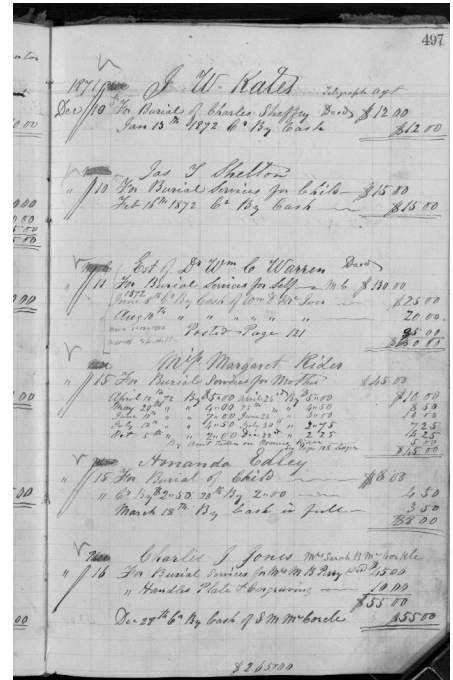 497
1871 J W. Kates Telegraph agt
Dec 10 For Burial of Charles Sheffey Decd $12 00
Jan 13th 1872 Cr By Cash $12 00
Jas T Shelton
" 10 For Burial Services for Child $15 00
Feb 16th 1872 Cr By Cash $15 00
Est of Dr Wm C Warren Decd
" 11 For Burial Services for Self $130 00
1872
June 8th Cr By Cash of $25 00
Aug 10th " " " " " 20 00
Posted Page 121 85 00
$130 00
Margaret Rider
" 15 For Burial Services for Mother $45 00
April 12th 72 By $5 00 April 23d By 5 00 $10 00
May 20th " " 4 00 25th " " 4 50 8 50
7 00 June
July 12th " " 4 50 July 30th " 2 75 7 25
Oct 5th " " 2 00 Dec 22d " 2 25 4 25
5 00
$45 00
Amanda Edley
" 15 For Burial of Child $8 00
" Cr By $2 50 20th By 2 00 4 50
March 18th By Cash in full 3 50
$8 00
Charles J Jones Mrs Sarah B McCorkle
" 16 For Burial Services for Mrs M B Perry 45 00
" Handles Plate & Engraving 10 00
$55 00
Dec 28th Cr By Cash of S M McCorcle $55 00
$265 00